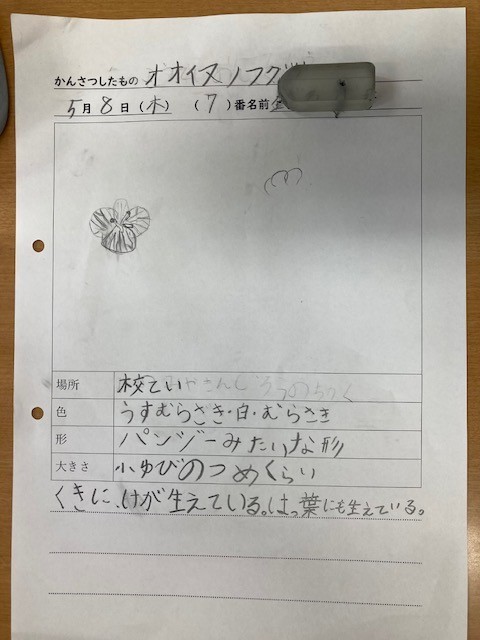 かんさつしたもの オオイヌノフグ
5月8日(木) (7)番名前
場所 校てい
色 うすむらさき・白・むらさき
形 パンジーみたいな形
大きさ 小ゆびのつめくらい
くきに、けが生えている。はっ葉にも生えている。